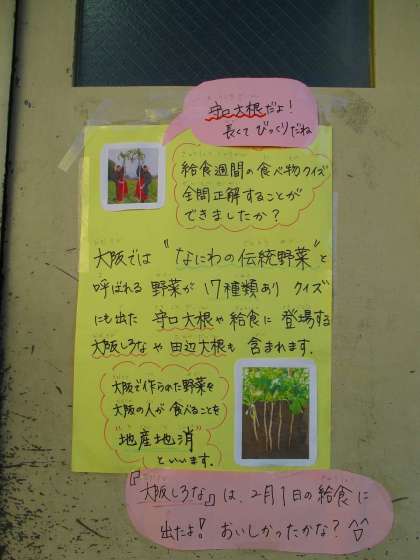 守口大根だよ!
長くて びっくりだね
給食週間の食べ物クイズ
全問正解することが
できましたか?
大阪では "なにわの伝統野菜" と
呼ばれる 野菜が 17種類あり クイズ
にも出た 守口大根や給食に 登場する
大阪しろなや田辺大根も 含まれます.
大阪で作られた野菜を
大阪の人が食べることを
"地産地消"
といいます.
『大阪しろな』は、2月1日の給食に
出たよ! おいしかったかな?